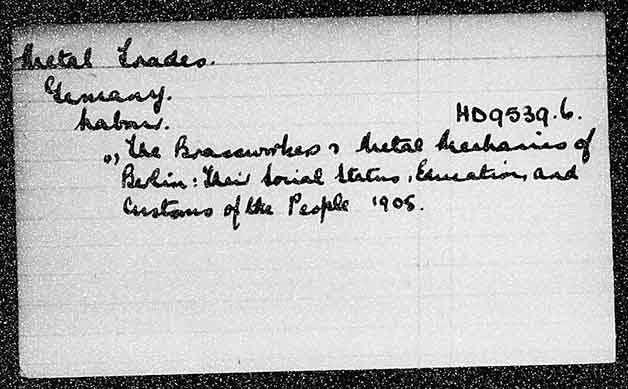 Metal Trades.
Germany.
Labour.
HD9539.6.
„ The Brassworkers & Metal Mechanics of
Berlin: Their Social Status, Education, and
Customs of the People 1905.